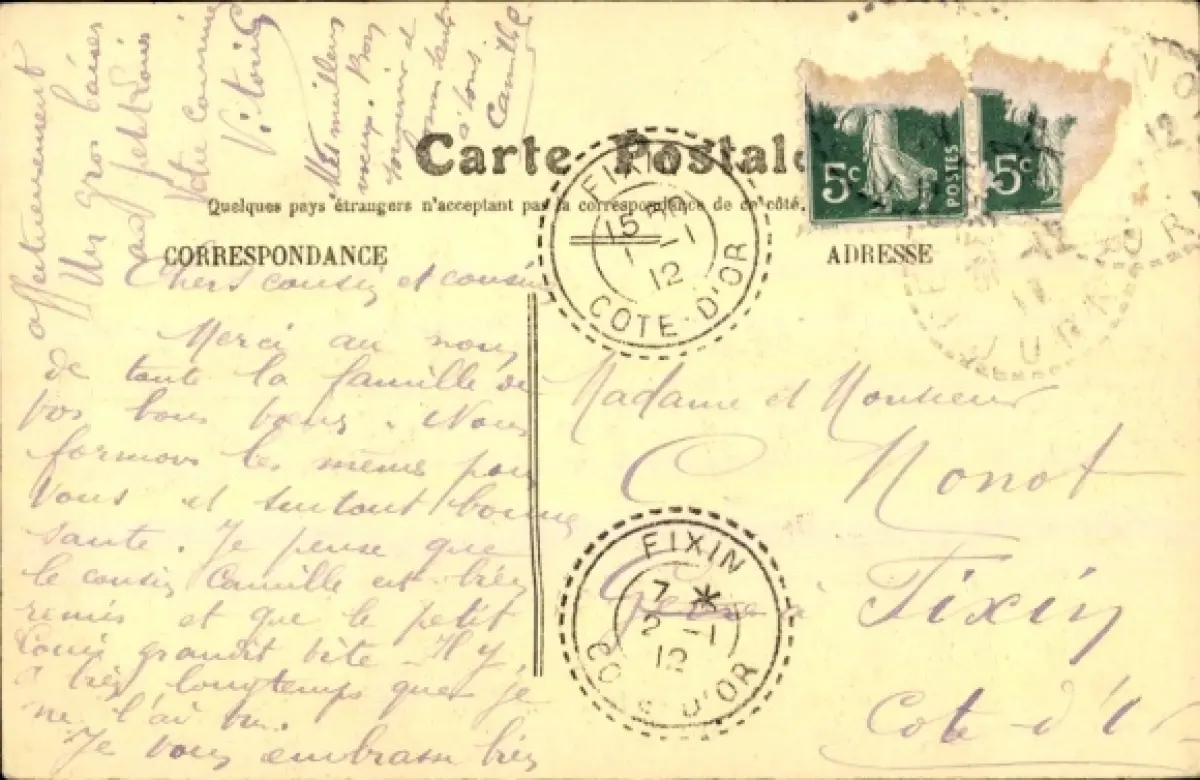 Carte Postale
Quelques pays étrangers n'acceptent pas la correspondance de ce côté.
CORRESPONDANCE
ADRESSE
5c POSTES
5c
FIXIN
15
1 -1
12
COTE-D'OR
FIXIN
7 *
2 -1
12
COTE-D'OR
JURA
12
Chers cousin et cousine
Merci au nom
de toute la famille de
vos bons vœux. Nous
formons les mêmes pour
vous et surtout bonne
santé. Je pense que
le cousin Camille est très
remis et que le petit
Louis grandit vite. Il y
a très longtemps que je
ne l'ai vu.
Je vous embrasse très
affectueusement
Un gros baiser
au petit Louis
Votre cousine
Mes meilleurs
voeux. Bon
souvenir et
à tous
Camille
Madame et Monsieur
C. Nonot
à Fixin
Cote-d'Or